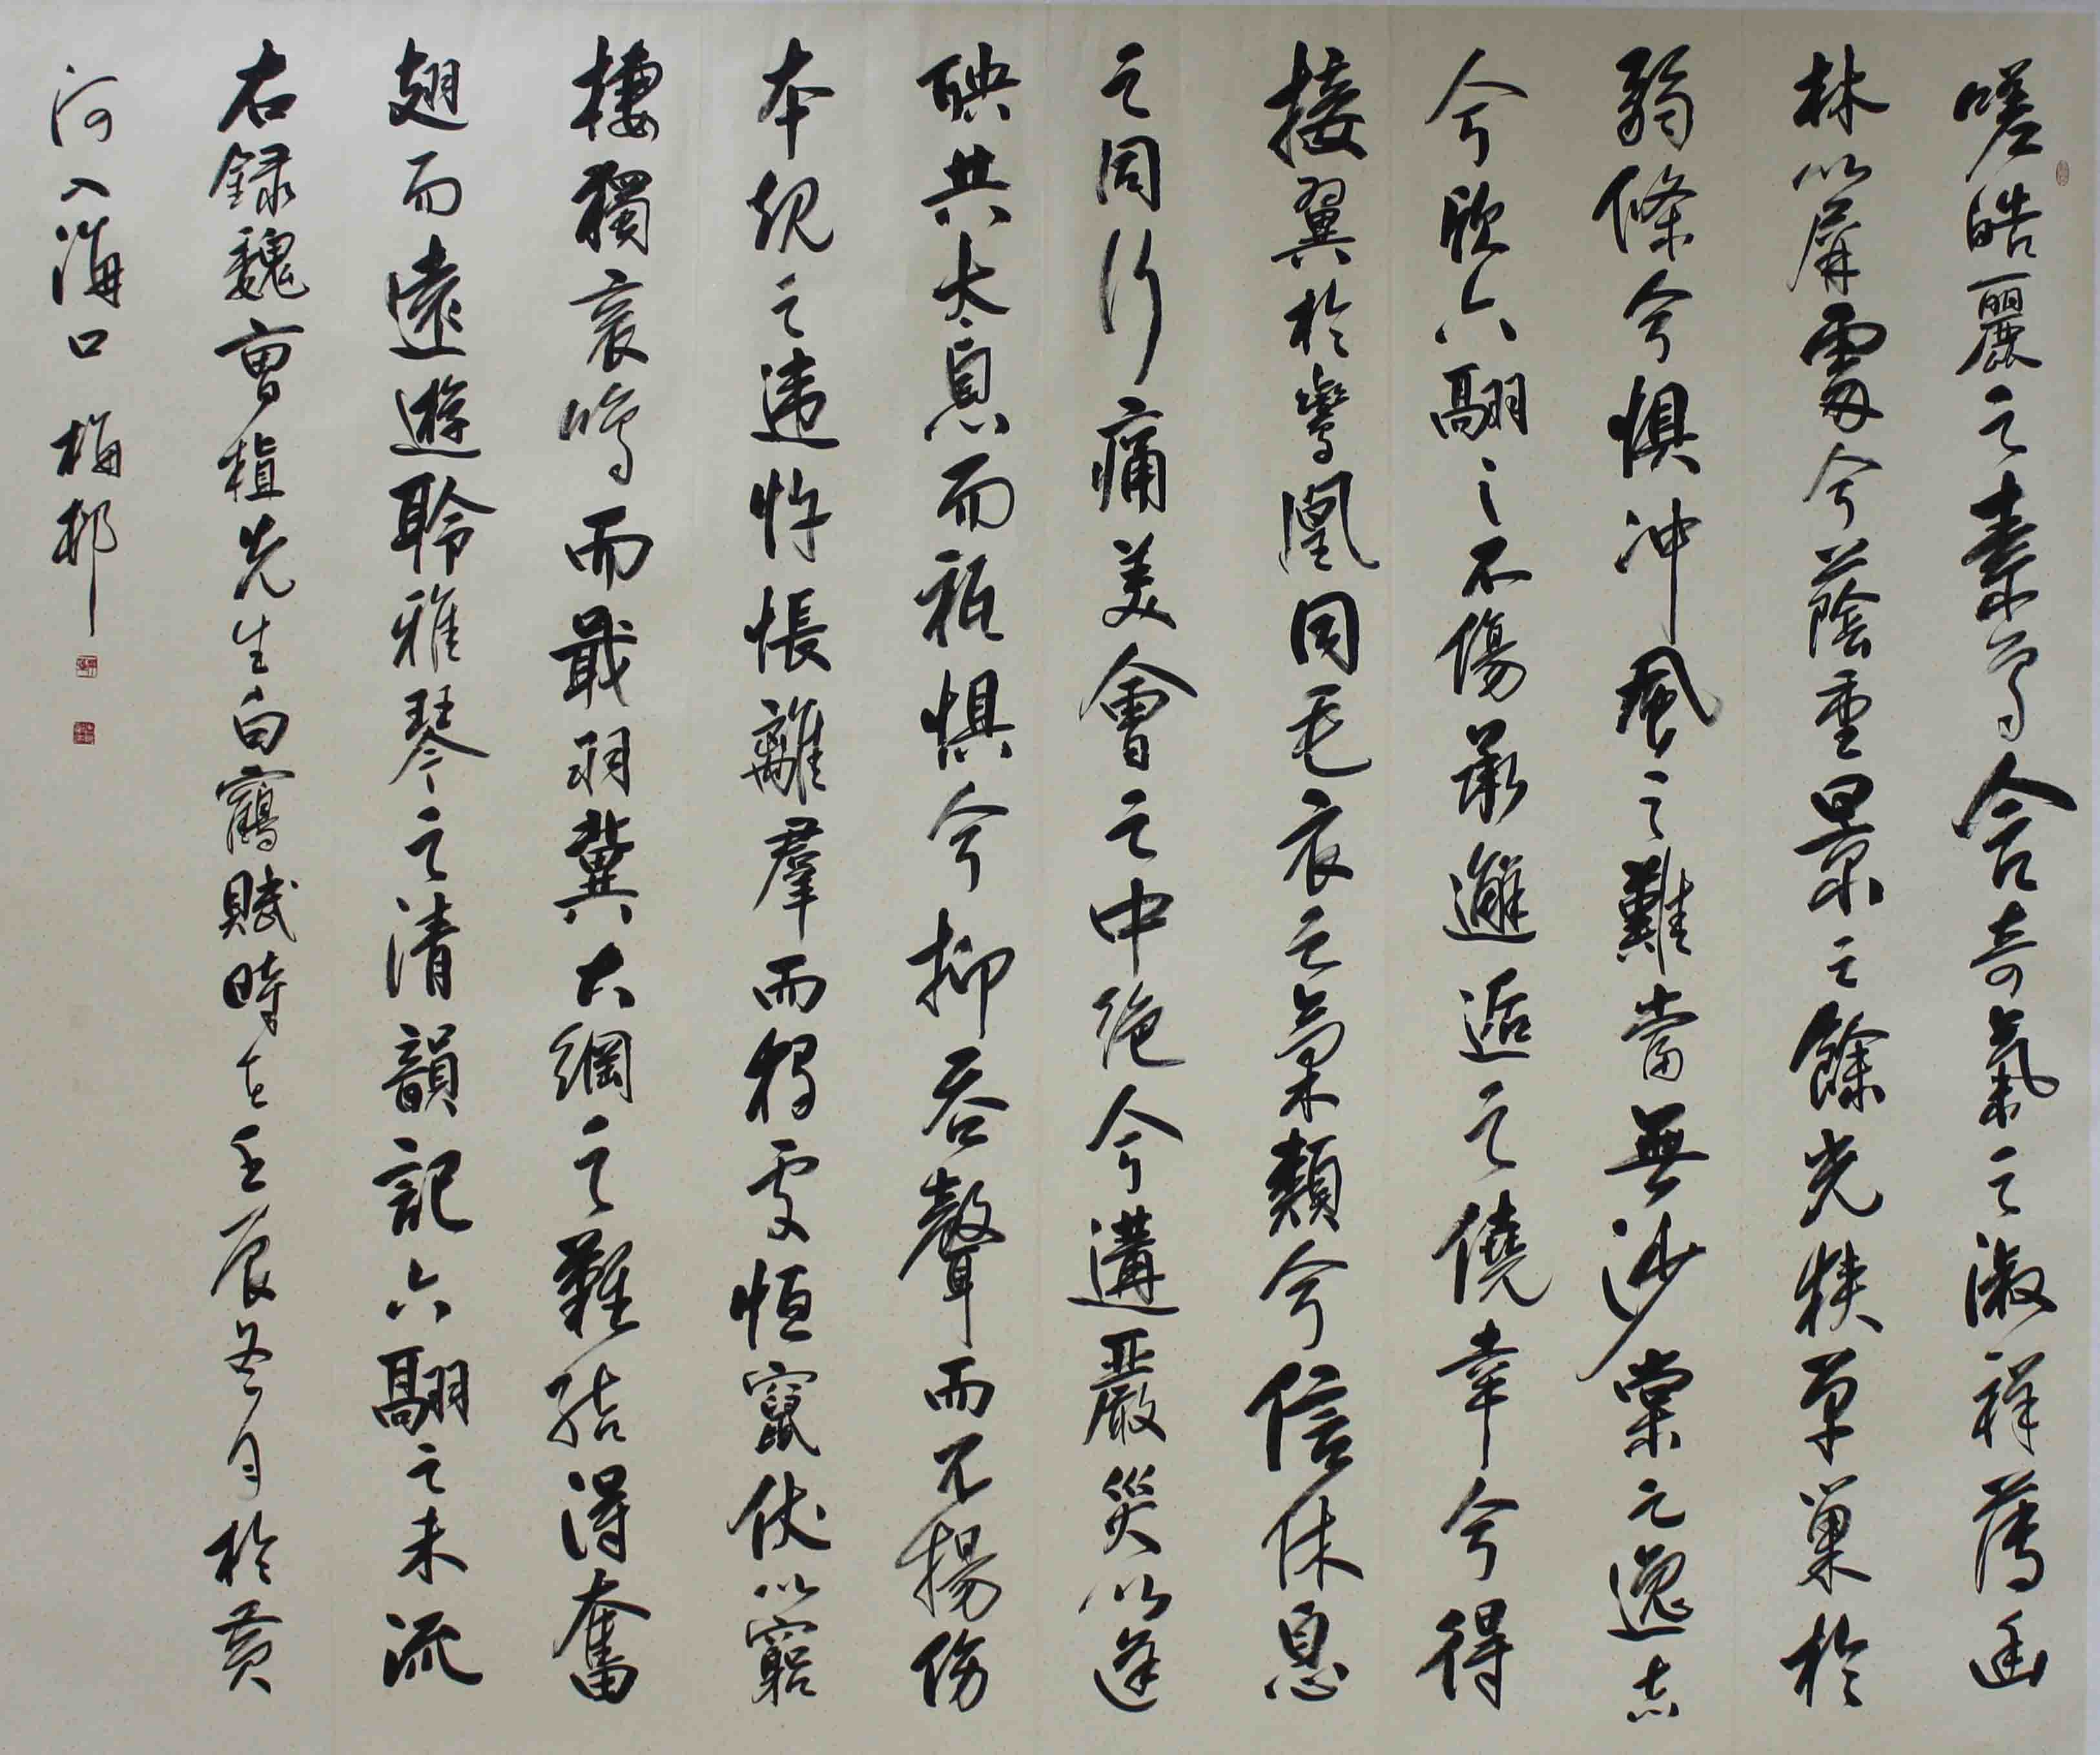 嗟皓麗之素鳥含奇氣之淑祥薄幽
林以屏處兮蔭重景之餘光狹單巢於
弱條兮懼沖風之難當無沙棠之逸志
兮欣六翮之不傷承邂逅之僥幸兮得
接翼於鸞凰同毛衣之氣類兮信休息
之同行痛美會之中絕兮遘嚴災以逢
殃共太息而祗懼兮抑吞聲而不揚傷
本規之違忤悵離羣而獨處恒竄伏以窮
棲獨哀鳴而戢羽冀大綱之難結得奮
翅而遠遊聆雅琴之清韻記六翮之末流
右録魏曹植先生白鶴賦時在壬辰冬月於黃
河入海口 梅邨